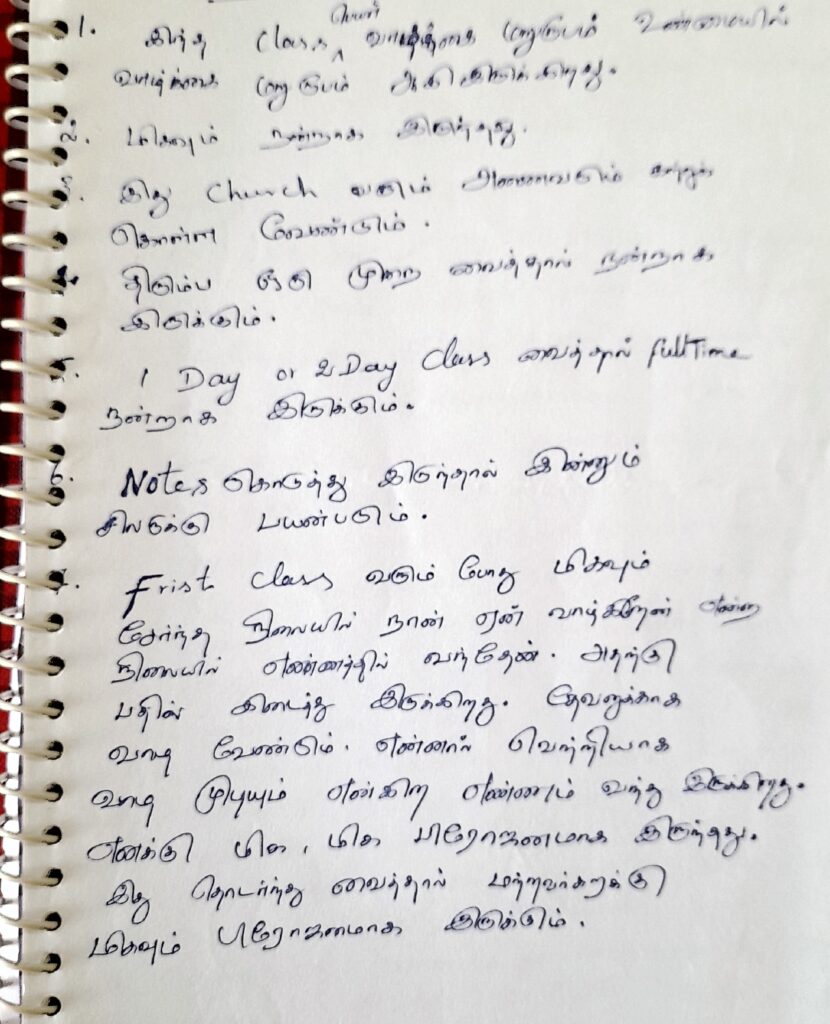 பெயர்
1. இந்த Class வாழ்க்கை மறுரூபம் உண்மையில்
வாழ்க்கை மறுரூபம் ஆகி இருக்கிறது.
2. மிகவும் நன்றாக இருந்தது.
3. இது Church வரும் அனைவரும் கற்றுக்
கொள்ள வேண்டும்.
4. திரும்ப ஒரு முறை வைத்தால் நன்றாக
இருக்கும்.
5. 1 Day or 2 Day Class வைத்தால் fullTime
நன்றாக இருக்கும்.
6. Notes கொடுத்து இருந்தால் இன்னும்
சிலருக்கு பயன்படும்.
7. Frist class வரும் போது மிகவும்
சோர்ந்த நிலையில் நான் ஏன் வாழ்கிறேன் என்ற
நிலையில் எண்ணத்தில் வந்தேன். அதற்கு
பதில் கிடைத்து இருக்கிறது. தேவனுக்காக
வாழ வேண்டும். என்னால் வெற்றியாக
வாழ முடியும் என்கிற எண்ணம் வந்து இருக்கிறது.
எனக்கு மிக, மிக பிரோஜனமாக இருந்தது.
இது தொடர்ந்து வைத்தால் மற்றவர்களுக்கு
மிகவும் பிரோஜனமாக இருக்கும்.